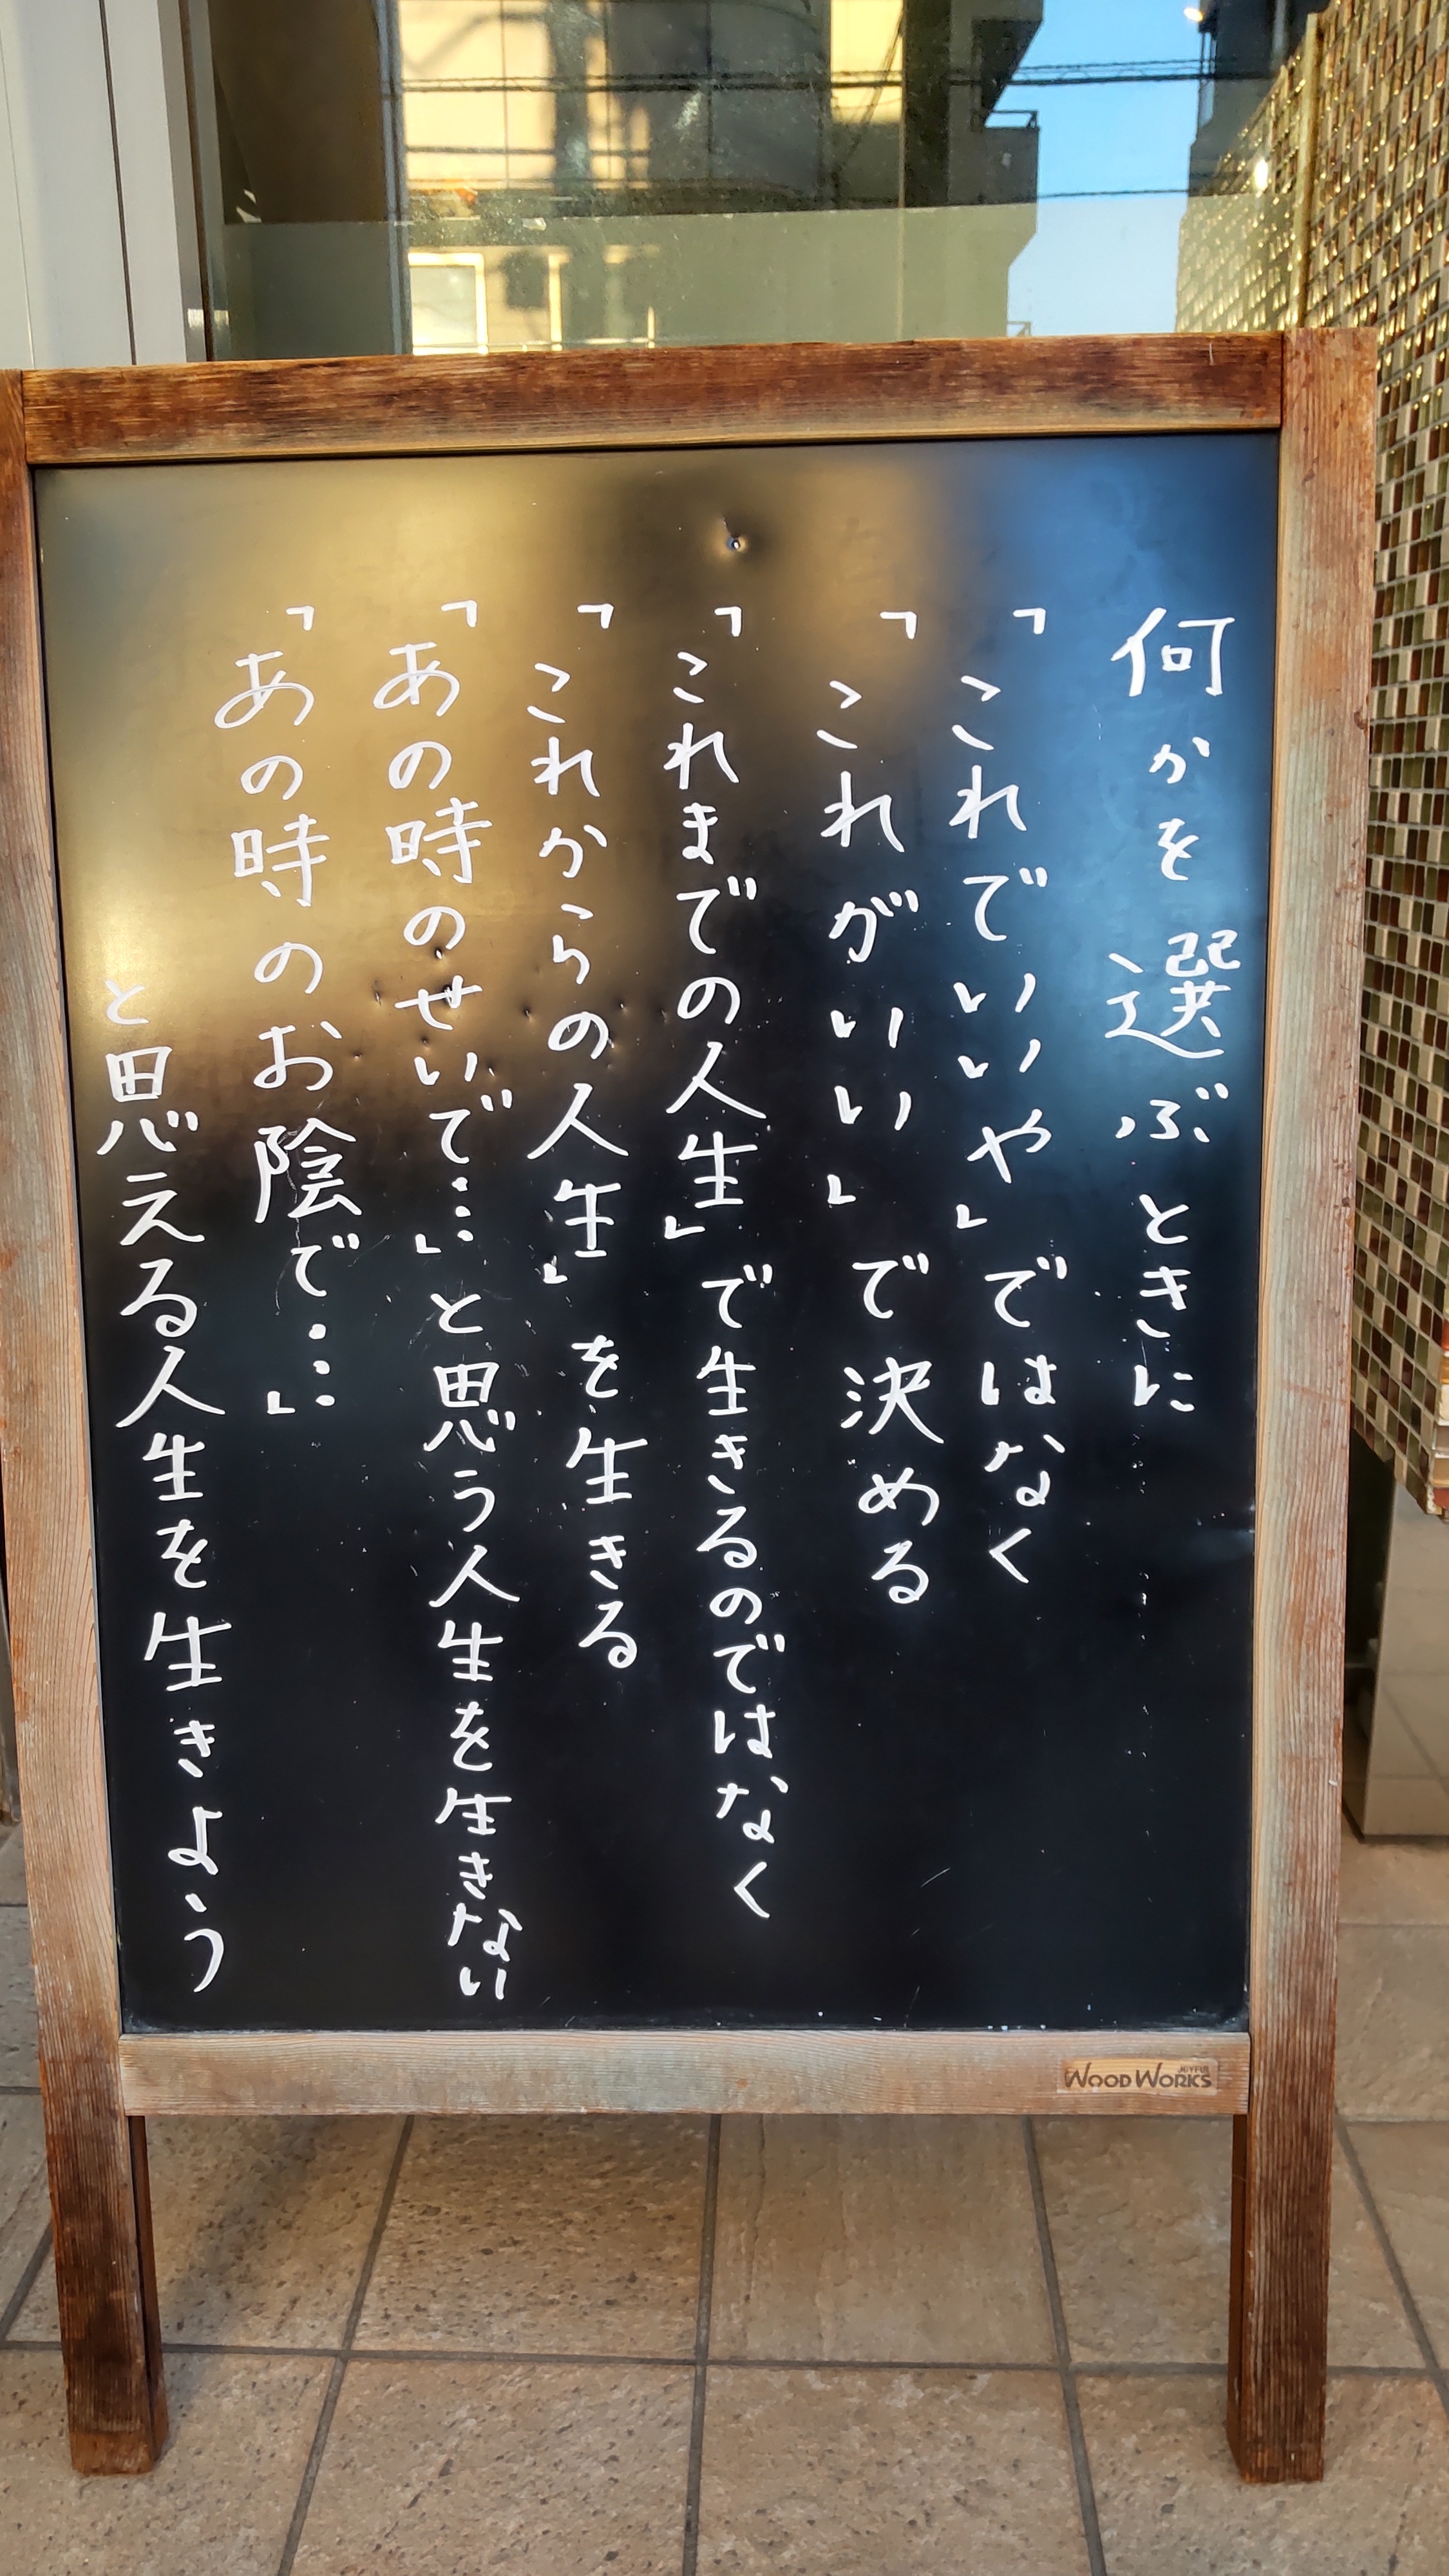 何かを選ぶときに
「これでいいや」ではなく
「これがいい」で決める
「これまでの人生」で生きるのではなく
「これからの人生」を生きる
「あの時のせいで…」と思う人生を生きない
「あの時のお陰で…」
と思える人生を生きよう
JOYFUL
WOODWORKS